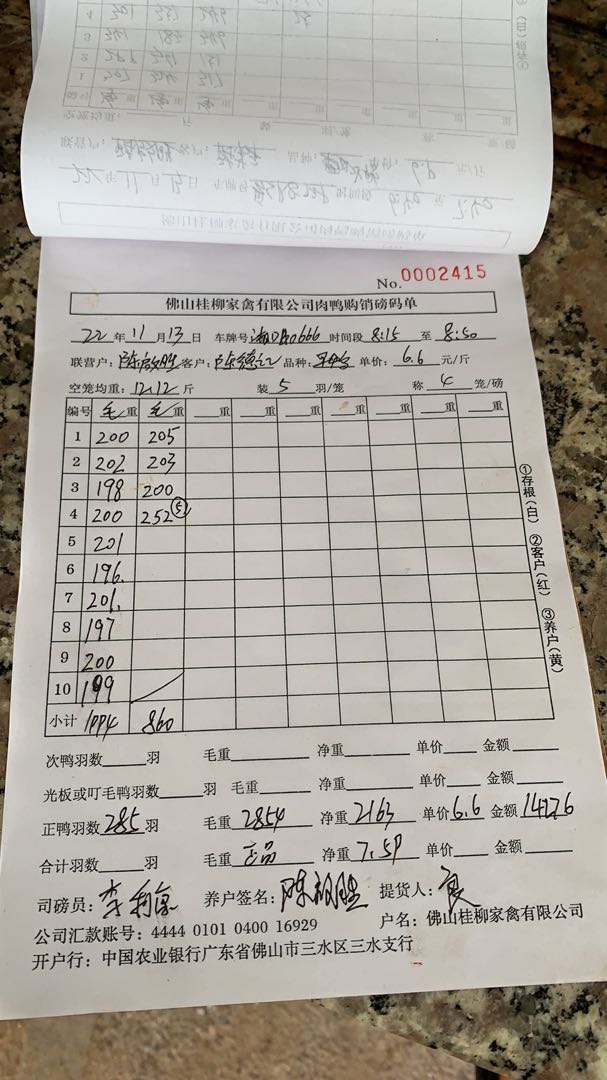 No. 0002415
佛山桂柳家禽有限公司肉鸭购销磅码单
22年11月13日 车牌号 时间段 8:15 至 8:50
联营户: 客户: 品种: 单价: 6.6 元/斤
空笼均重: 12.12 斤 装 5 羽/笼 称 4 笼/磅
编号 毛重 毛重 重 重 重 重 重 重
1 200 205
2 202 203
3 198 200
4 200 252 ⑤
5 201
6 196.
7 201.
8 197
9 200
10 199
小计 1994 860
①存根(白) ②客户(红) ③养户(黄)
次鸭羽数 羽 毛重 净重 单价 金额
光板或叮毛鸭羽数 羽 毛重 净重 单价 金额
正鸭羽数 285 羽 毛重 2854 净重 2163 单价 6.6 金额
合计羽数 羽 毛重 净重 7.59 单价 金额
司磅员: 养户签名: 提货人:
公司汇款账号: 4444 0101 0400 16929 户名: 佛山桂柳家禽有限公司
开户行: 中国农业银行广东省佛山市三水区三水支行